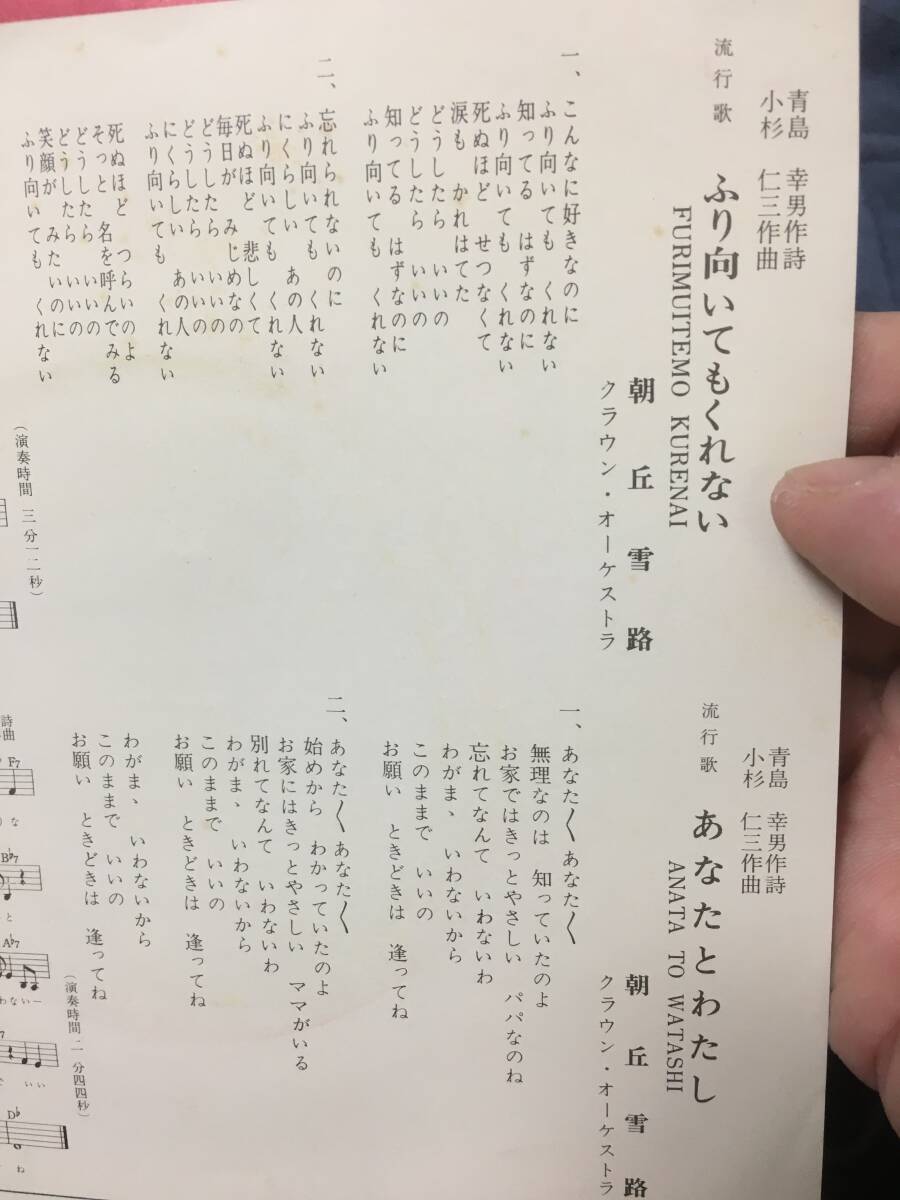 青島 幸男作詩
小杉 仁三作曲
流行歌 ふり向いてもくれない
FURIMUITEMO KURENAI
朝丘雪路
クラウン・オーケストラ
一、こんなに好きなのに
ふり向いても くれない
知ってる はずなのに
ふり向いても くれない
死ぬほど せつなくて
涙も かれはてた
どうしたら いいの
どうしたら いいの
知ってる はずなのに
ふり向いても くれない
二、忘れられないのに
ふり向いても くれない
にくらしい あの人
ふり向いても くれない
死ぬほど 悲しくて
毎日が みじめなの
どうしたら いいの
どうしたら いいの
にくらしい あの人
ふり向いても くれない
死ぬほど つらいのよ
そっと 名を呼んでみる
どうしたら いいの
どうしたら いいの
笑顔が みたいのに
ふり向いても くれない
(演奏時間 三分一二秒)
青島 幸男作詩
小杉 仁三作曲
流行歌 あなたとわたし
ANATA TO WATASHI
朝丘雪路
クラウン・オーケストラ
一、あなた〳〵あなた〳〵
無理なのは 知っていたのよ
お家ではきっとやさしい パパなのね
忘れてなんて いわないわ
わがまゝ いわないから
このままで いいの
お願い ときどきは 逢ってね
二、あなた〳〵あなた〳〵
始めから わかっていたのよ
お家にはきっとやさしい ママがいる
別れてなんて いわないわ
わがまゝ いわないから
このままで いいの
お願い ときどきは 逢ってね
わがまゝ いわないから
このままで いいの
お願い ときどきは 逢ってね
(演奏時間二分四四秒)
詩
曲
F7
な
B♭7
と
A♭7
わないー
7
で いい
D♭
ね